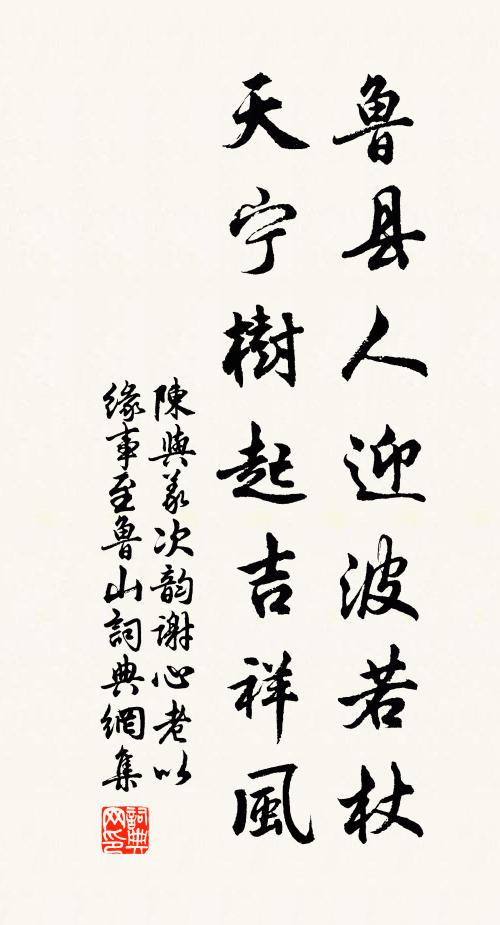 魯县人迎波若杖
天宁樹起吉祥風
陳與義次韵謝心老以
緣事至魯山詞典網集
詞典
网印